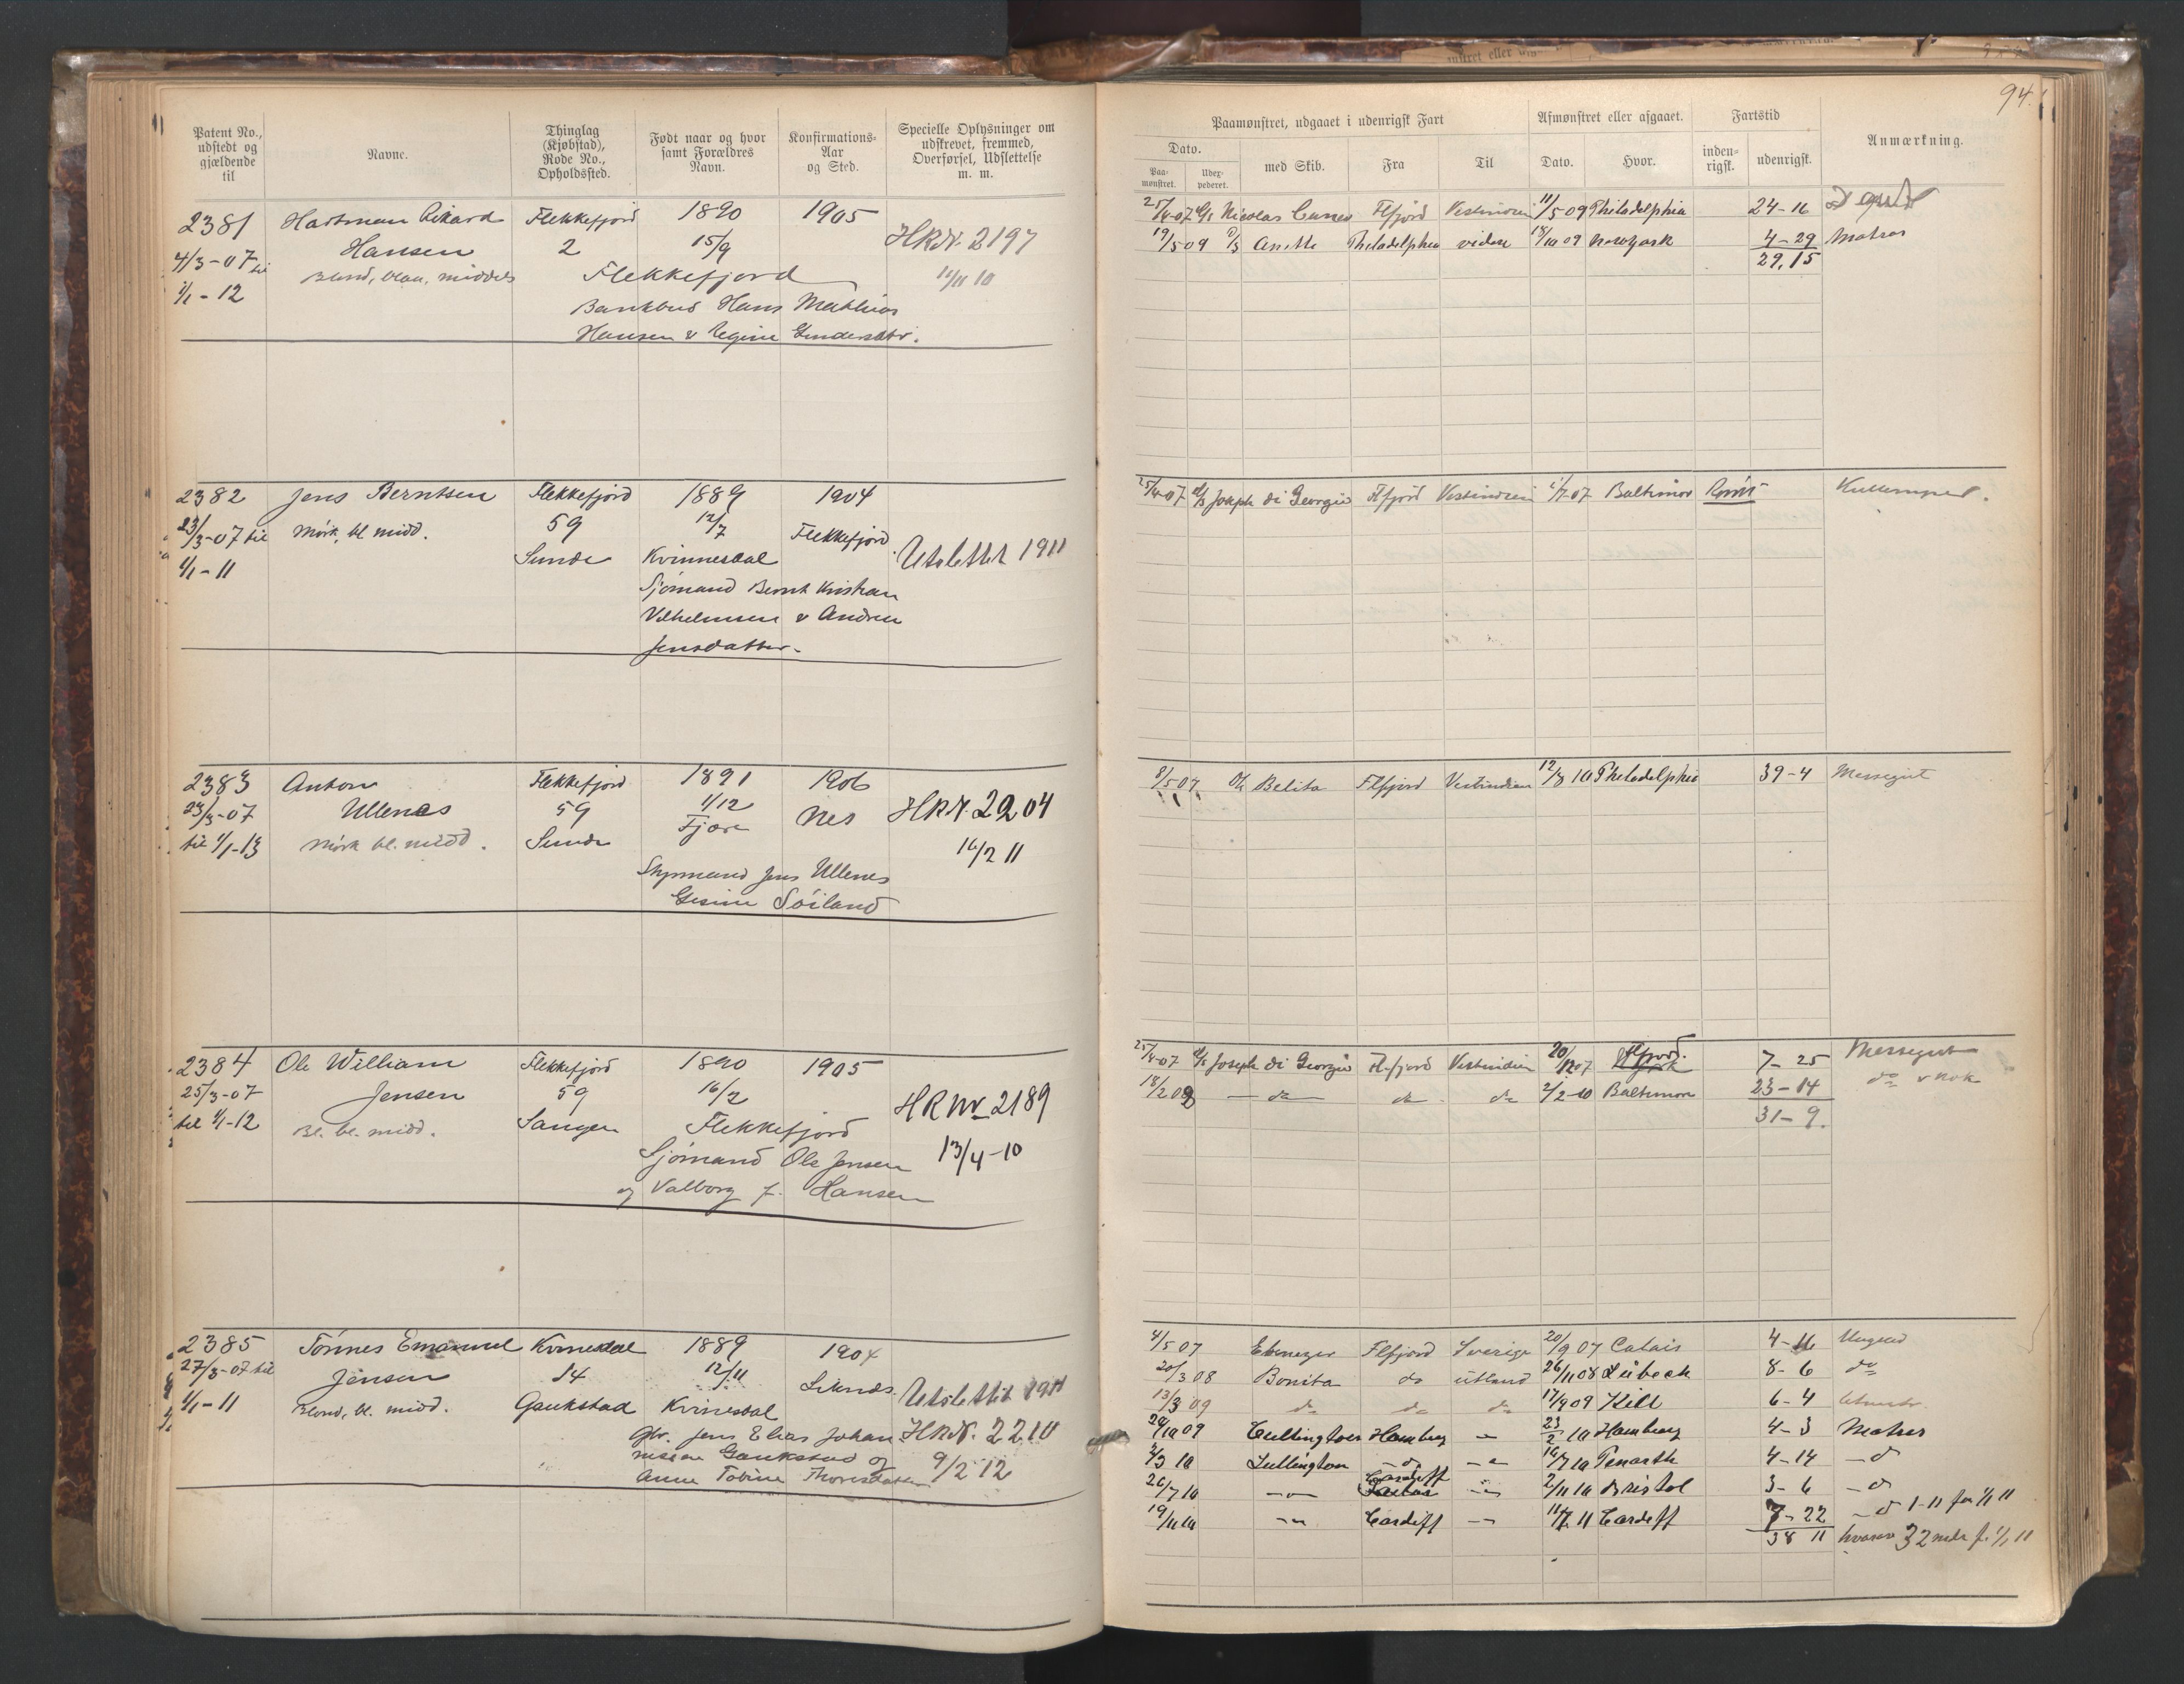 94.
Patent No., udstedt og gjældende til
Navne.
Thinglag (Kjøbstad), Rode No., Opholdssted.
Født naar og hvor samt Forældres Navn.
Konfirmations-Aar og Sted.
Specielle Oplysninger om udskrevet, fremmed, Overførsel, Udslettelse m. m.
Paamønstret, udgaaet i udenrigsk Fart
Afmønstret eller afgaaet.
Fartstid
Anmærkning.
Dato.
Paa-mønstret.
Udex-pederet.
med Skib.
Fra
Til
Dato.
Hvor.
inden-rigsk.
udenrigsk.
2381 Hartman Rikard Flekkefjord 1890 1905
4/3-07 til Hansen 2 15/9 HRN. 2197
1/1-12 Blond, blaa, middels Flekkefjord 14/11 10
Bankbud Hans Mathias
Hansen & Regine Gundersdtr.
25/4-07 Nicolas Cuneo Flfjord Vestindien 11/5 09 Philadelphia 24-16
19/5 09 Anitta Philadelphia videre 18/10 09 Newyork 4-29 Matros
29,15
2382 Jens Berntsen Flekkefjord 1889 1904
23/3-07 til Mörk, bl. midd. 59 12/7 Flekkefjord
1/1-11 Sunde Kvinnesdal Utslettet 1911
Sjömand Bernt Kristian
Vilhelmsen & Andrea
Jensdatter.
25/4-07 Joseph di Georgio Flfjord Vestindien 07 Baltimor Römt
2383 Anton Flekkefjord 1891 1906
23/3-07 Ullenes 59 1/12 Nes HRN. 2204
til 1/1-13 Mörk bl. midd. Sunde Fjære 16/2 11
Styrmand Jens Ullenes
Gesine Söiland
8/5 07 Belita Flfjord Vestindien 12/8 10 Philadelphia 39-4 Messegut
2384 Ole William Flekkefjord 1890 1905
25/3-07 Jensen 59 16/2 HR Nr 2189
til 1/1-12 Bl. bl. midd. Sangen Flekkefjord 13/4-10
Sjömand Ole Jensen
og Valborg f. Hansen
25/4-07 Joseph di Georgio Flfjord Vestindien 20/12 07 Flfjord. 7-25 Messegut
18/2 08 — do — do do 2/2-10 Baltimore 23-14 do & kok
31-9.
2385 Tönnes Emanuel Kvinesdal 1889 1904
27/3-07 til Jensen 14 12/11 Liknes.
1/1-11 Blond, bl. midd. Gaukstad Kvinesdal Utslettet 1911
Gbr. Jens Elias Johan HRN. 2210
nessen Gaukstad og 9/2 12
Anne Tobine Thorsdatter
4/5 07 Ebenezer Flfjord Sverige 20/9 07 Calais 4-16 Ungmd
20/3 08 Bonita do utland 26/11 08 Lübeck 8-6 do
13/3 09 do do do 17/9 09 Kiel 6-4
20/10 09 Cullington Hamburg — 23/2 10 Hamburg 4-3 Matros
2/3 10 Lullington — d — 16/7 10 Penarth 4-14 — d
26/7 10 — Cardiff — 2/11 10 Bristol 3-6 — d
19/11 10 — Cardiff — 11/7 11 Cardiff 7-22 — d 1-11 før 1/1 11
38 11 hvorav 32 mdr f. 1/1 11